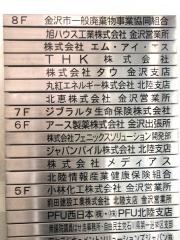 8F 金沢市一般廃棄物事業協同組合
旭ハウス工業株式会社 金沢営業所
株式会社 エム・アイ・マス
THK 株式会社
株式会社 タウ 金沢支店
丸紅エネルギー株式会社 北陸支店
北恵株式会社 金沢営業所
7F ジブラルタ生命保険株式会社
6F アース製薬株式会社 金沢出張所
株式会社フェニックスソリューション 開発部
ジャパンパイル株式会社 北陸支店
株式会社 メディアス
北陸情報産業健康保険組合
5F 小林化工株式会社 金沢営業所
前田建設工業株式会社 北陸支店
PFU西日本株式会社 北陸支店